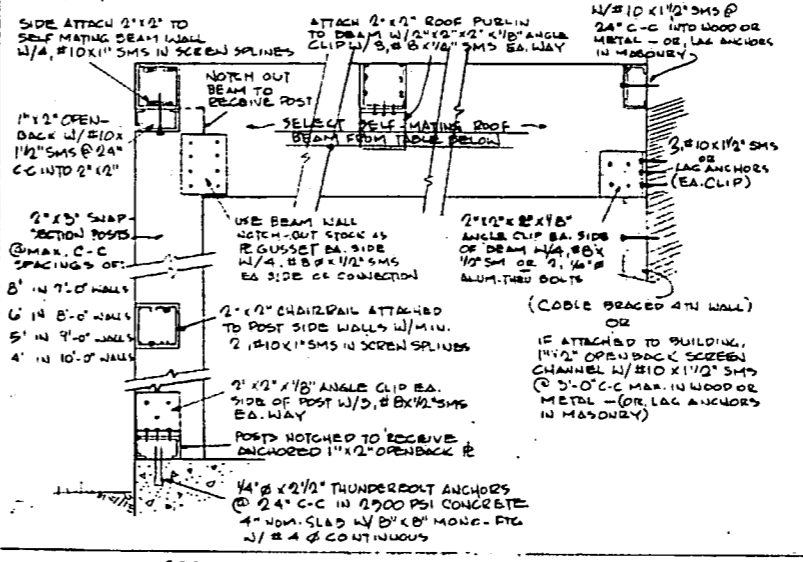 SIDE ATTACH 2"x2" TO
SELF MATING BEAM WALL
W/4, #10x1" SMS IN SCREN SPLINES
ATTACH 2"x2" ROOF PURLIN
TO BEAM W/2"x2"x2"x1/8" ANGLE
CLIP W/3, #8x1/2" SMS EA. WAY
W/#10 x1 1/2" SMS @
24" C-C INTO WOOD OR
METAL - OR, LAG ANCHORS
IN MASONRY
NOTCH OUT
BEAM TO
RECEIVE POST
1"x2" OPEN-
BACK W/#10x
1 1/2" SMS @ 24"
C-C INTO 2"x2"
SELECT SELF-MATING ROOF
BEAM FROM TABLE BELOW
3, #10x1 1/2" SMS
OR
LAG ANCHORS
(EA. CLIP)
2"x3" SNAP
SECTION POSTS
@ MAX. C-C
SPACINGS OF:
8' IN 7'-0" WALLS
6' IN 8'-0" WALLS
5' IN 9'-0" WALLS
4' IN 10'-0" WALLS
USE BEAM WALL
NOTCH-OUT STOCK AS
PL GUSSET EA. SIDE
W/4, #8 Ø x1/2" SMS
EA SIDE OF CONNECTION
ANGLE CLIP EA. SIDE
OF BEAM W/4, #8x
1/2" SM OR 2,
ALUM. THRU BOLTS
(CABLE BRACED 4TH WALL)
OR
IF ATTACHED TO BUILDING,
1"x2" OPENBACK SCREEN
CHANNEL W/#10 x1 1/2" SMS
@ 3'-0" C-C MAX. IN WOOD OR
METAL - (OR, LAG ANCHORS
IN MASONRY)
2"x2" CHAIRRAIL ATTACHED
TO POST SIDE WALLS W/MIN.
2, #10x1" SMS IN SCREN SPLINES
2"x2"x1/8" ANGLE CLIP EA.
SIDE OF POST W/3, #8x1/2" SMS
EA. WAY
POSTS NOTCHED TO RECEIVE
ANCHORED 1"x2" OPENBACK PL
1/4" Ø x2 1/2" THUNDERBOLT ANCHORS
@ 24" C-C IN 2500 PSI CONCRETE
4" NOM. SLAB W/ 8"x8" MONO-FTG
W/ #4 Ø CONTINUOUS